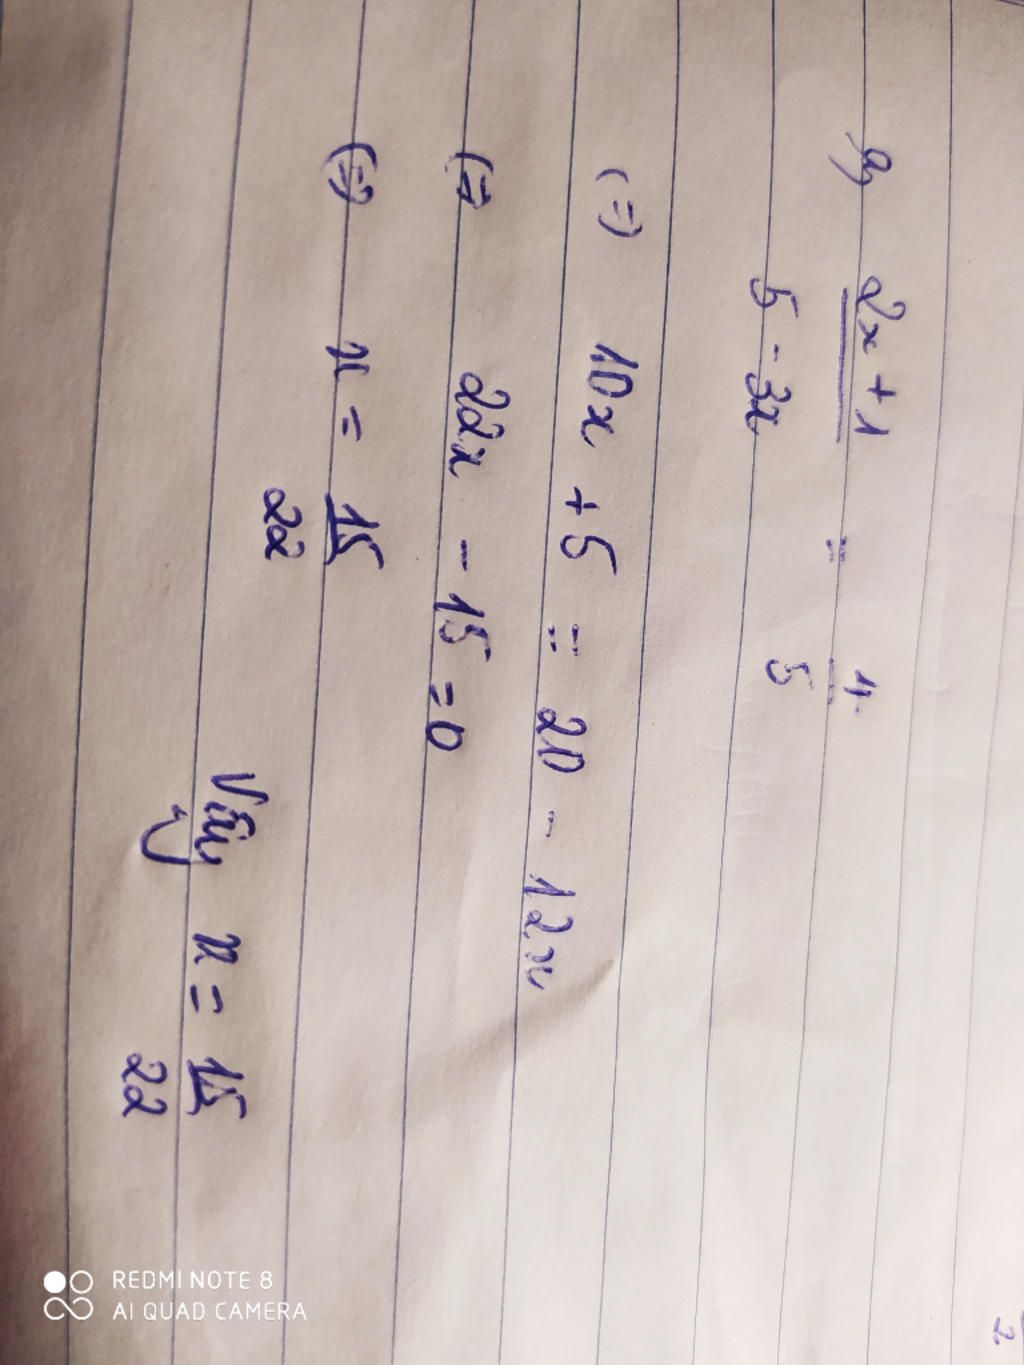 a, 2x + 1 = 4
5 - 3x 5
(=) 10x + 5 = 20 - 12x
(=) 22x - 15 = 0
(=) x = 15
22
Vậy x = 15
22
2
REDMI NOTE 8
AI QUAD CAMERA